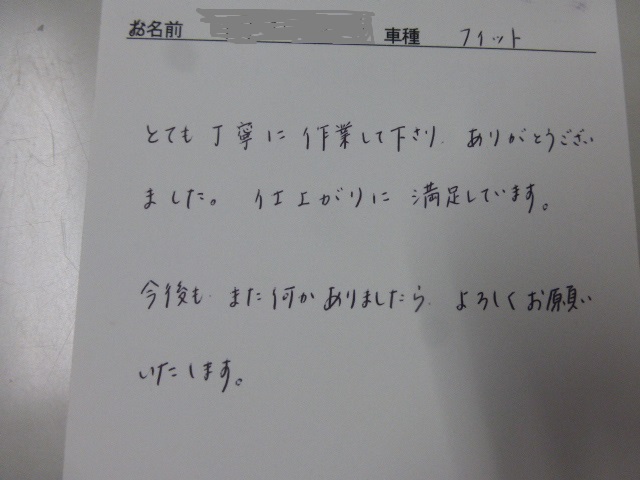 お名前 車種 フィット
とても丁寧に作業して下さり、ありがとうござい
ました。仕上がりに満足しています。
今後も、また何かありましたら、よろしくお願い
いたします。